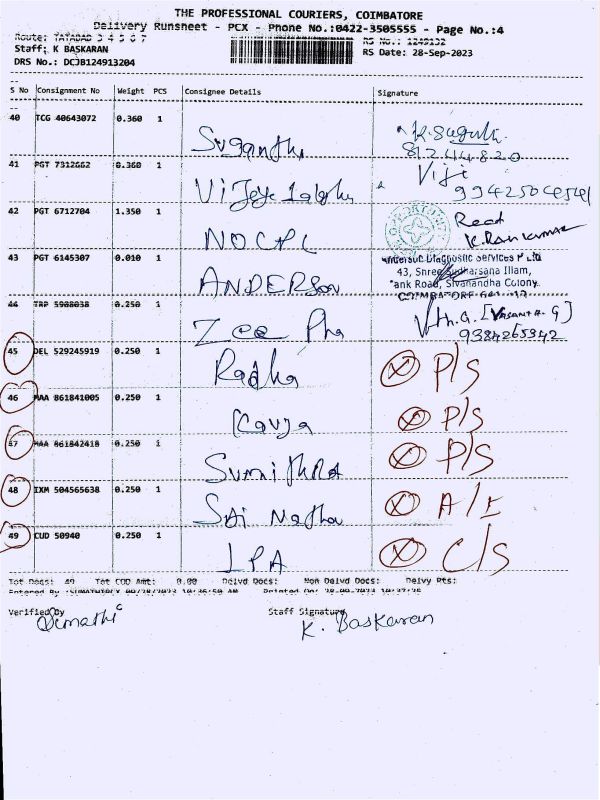 THE PROFESSIONAL COURIERS, COIMBATORE
Delivery Runsheet - PCX - Phone No.:0422-3505555 - Page No.:4
Route: TATABAD 3 4 5 6 7
RS No.: 1249132
Staff: K BASKARAN
RS Date: 28-Sep-2023
DRS No.: DCJB124913204
S No Consignment No Weight PCS Consignee Details Signature
40 TCG 40643072 0.360 1 Suganthi K.Suguth.
81244820
41 PGT 7312662 0.360 1 Vijaya Viji
42 PGT 6712704 1.350 1 NOCPL Recd
K.Ramkumar
43 PGT 6145307 0.010 1 ANDERSON Diagnostic Services P Ltd
43, Shree Sudharsana Illam,
Tank Road, Sivanandha Colony.
COIMBATORE-641 012
44 TRP 5988038 0.250 1 Zee Pha V.th.G. [Vasanth. G]
9384265342
45 DEL 529245919 0.250 1 Radha P/S
46 MAA 861841005 0.250 1 Kavya P/S
47 MAA 861842418 0.250 1 Sumithra P/S
48 IXM 504565638 0.250 1 Sai Natha A/E
49 CUD 50940 0.250 1 LPA C/S
Tot Docs: 49 Tot COD Amt: 0.00 Delvd Docs: Non Delvd Docs: Delvy Pts:
Entered By :SUMATHIPCX 09/28/2023 10:36:50 AM Printed On: 28-09-2023 10:37:26
Verified By Staff Signature
Sumathi K. Baskaran